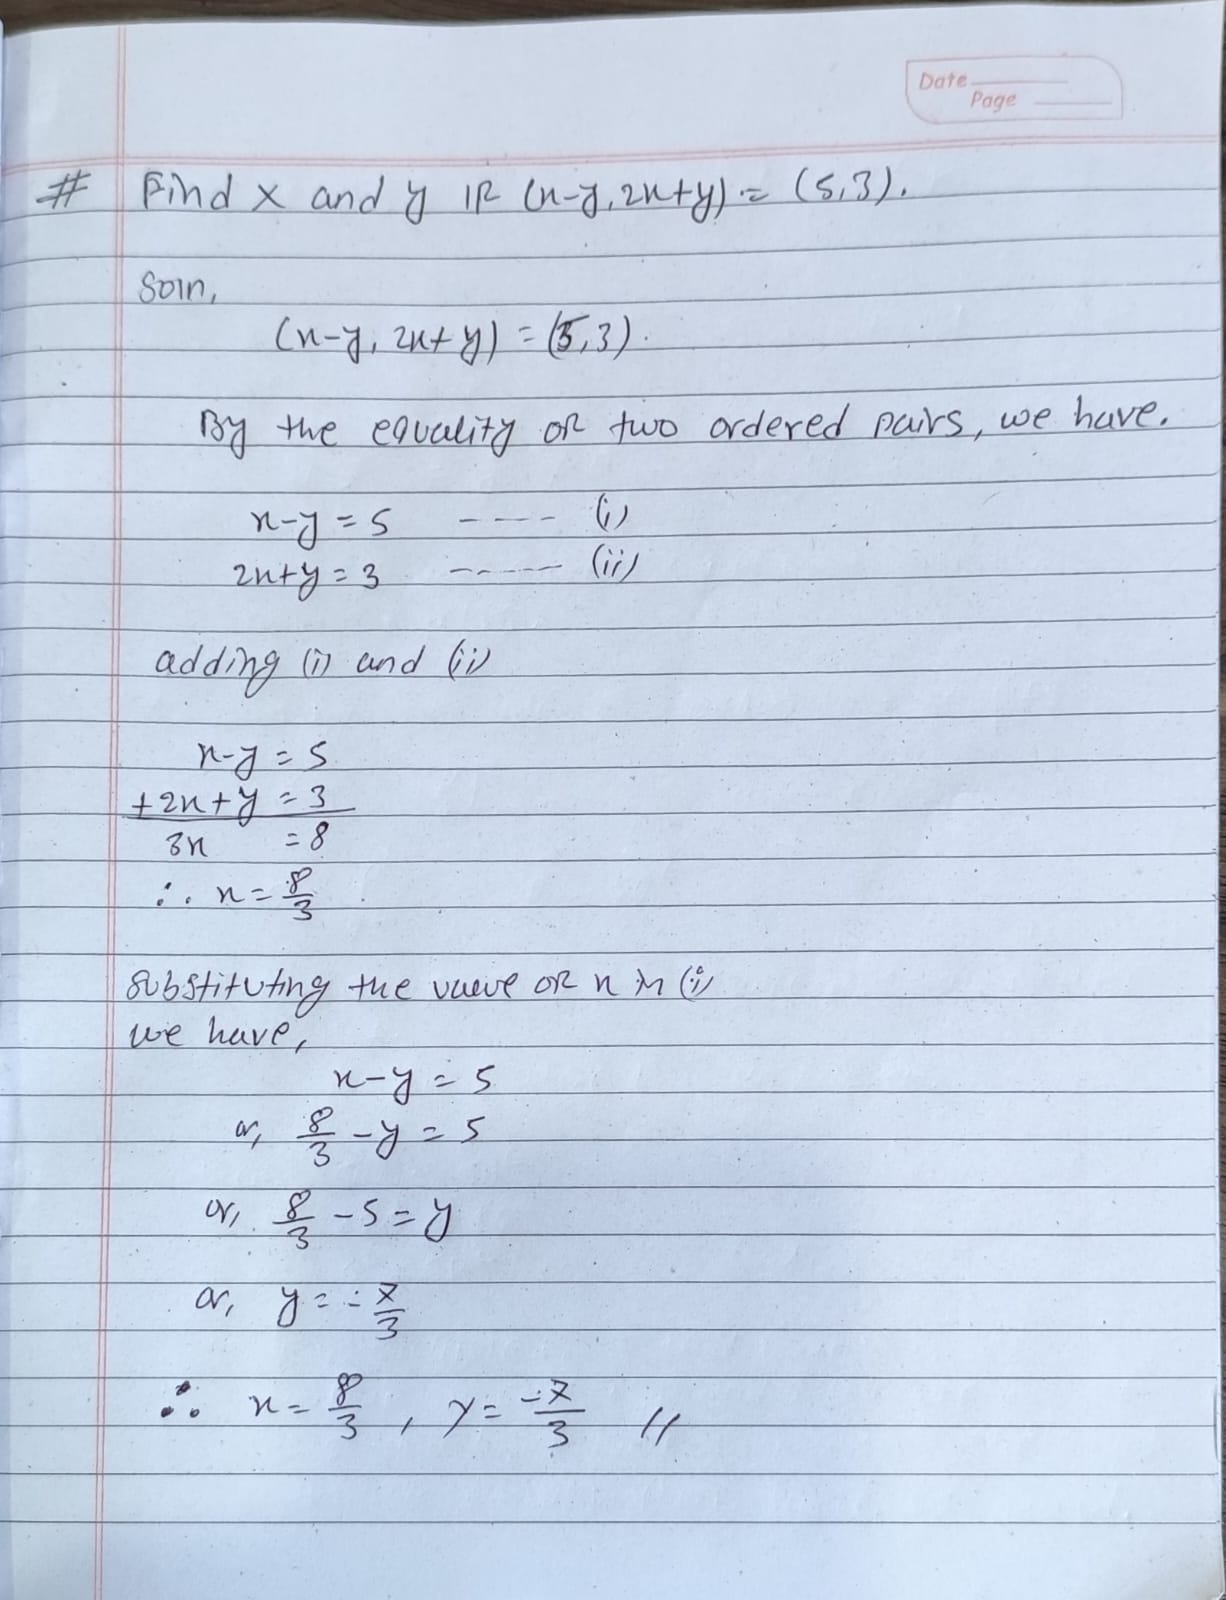 Date
Page
# Find x and y if (x-y, 2x+y) = (5,3).
Soln,
(x-y, 2x+y) = (5,3).
By the equality of two ordered pairs, we have.
x-y = 5 ---- (i)
2x+y = 3 ----- (ii)
adding (i) and (ii)
x-y = 5
+2x+y = 3
3x = 8
∴ x = 8/3
substituting the value of x in (i)
we have,
x-y = 5
or, 8/3 - y = 5
or, 8/3 - 5 = y
or, y = -7/3
∴ x = 8/3, y = -7/3 //